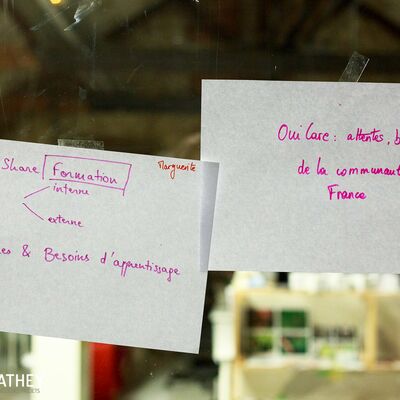 Share Formation
Marguerite
interne
externe
es & Besoins d'apprentissage
Oui Care: attentes, b
de la communaut
France
ATHE